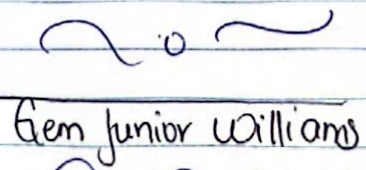 Gem Junior Williams